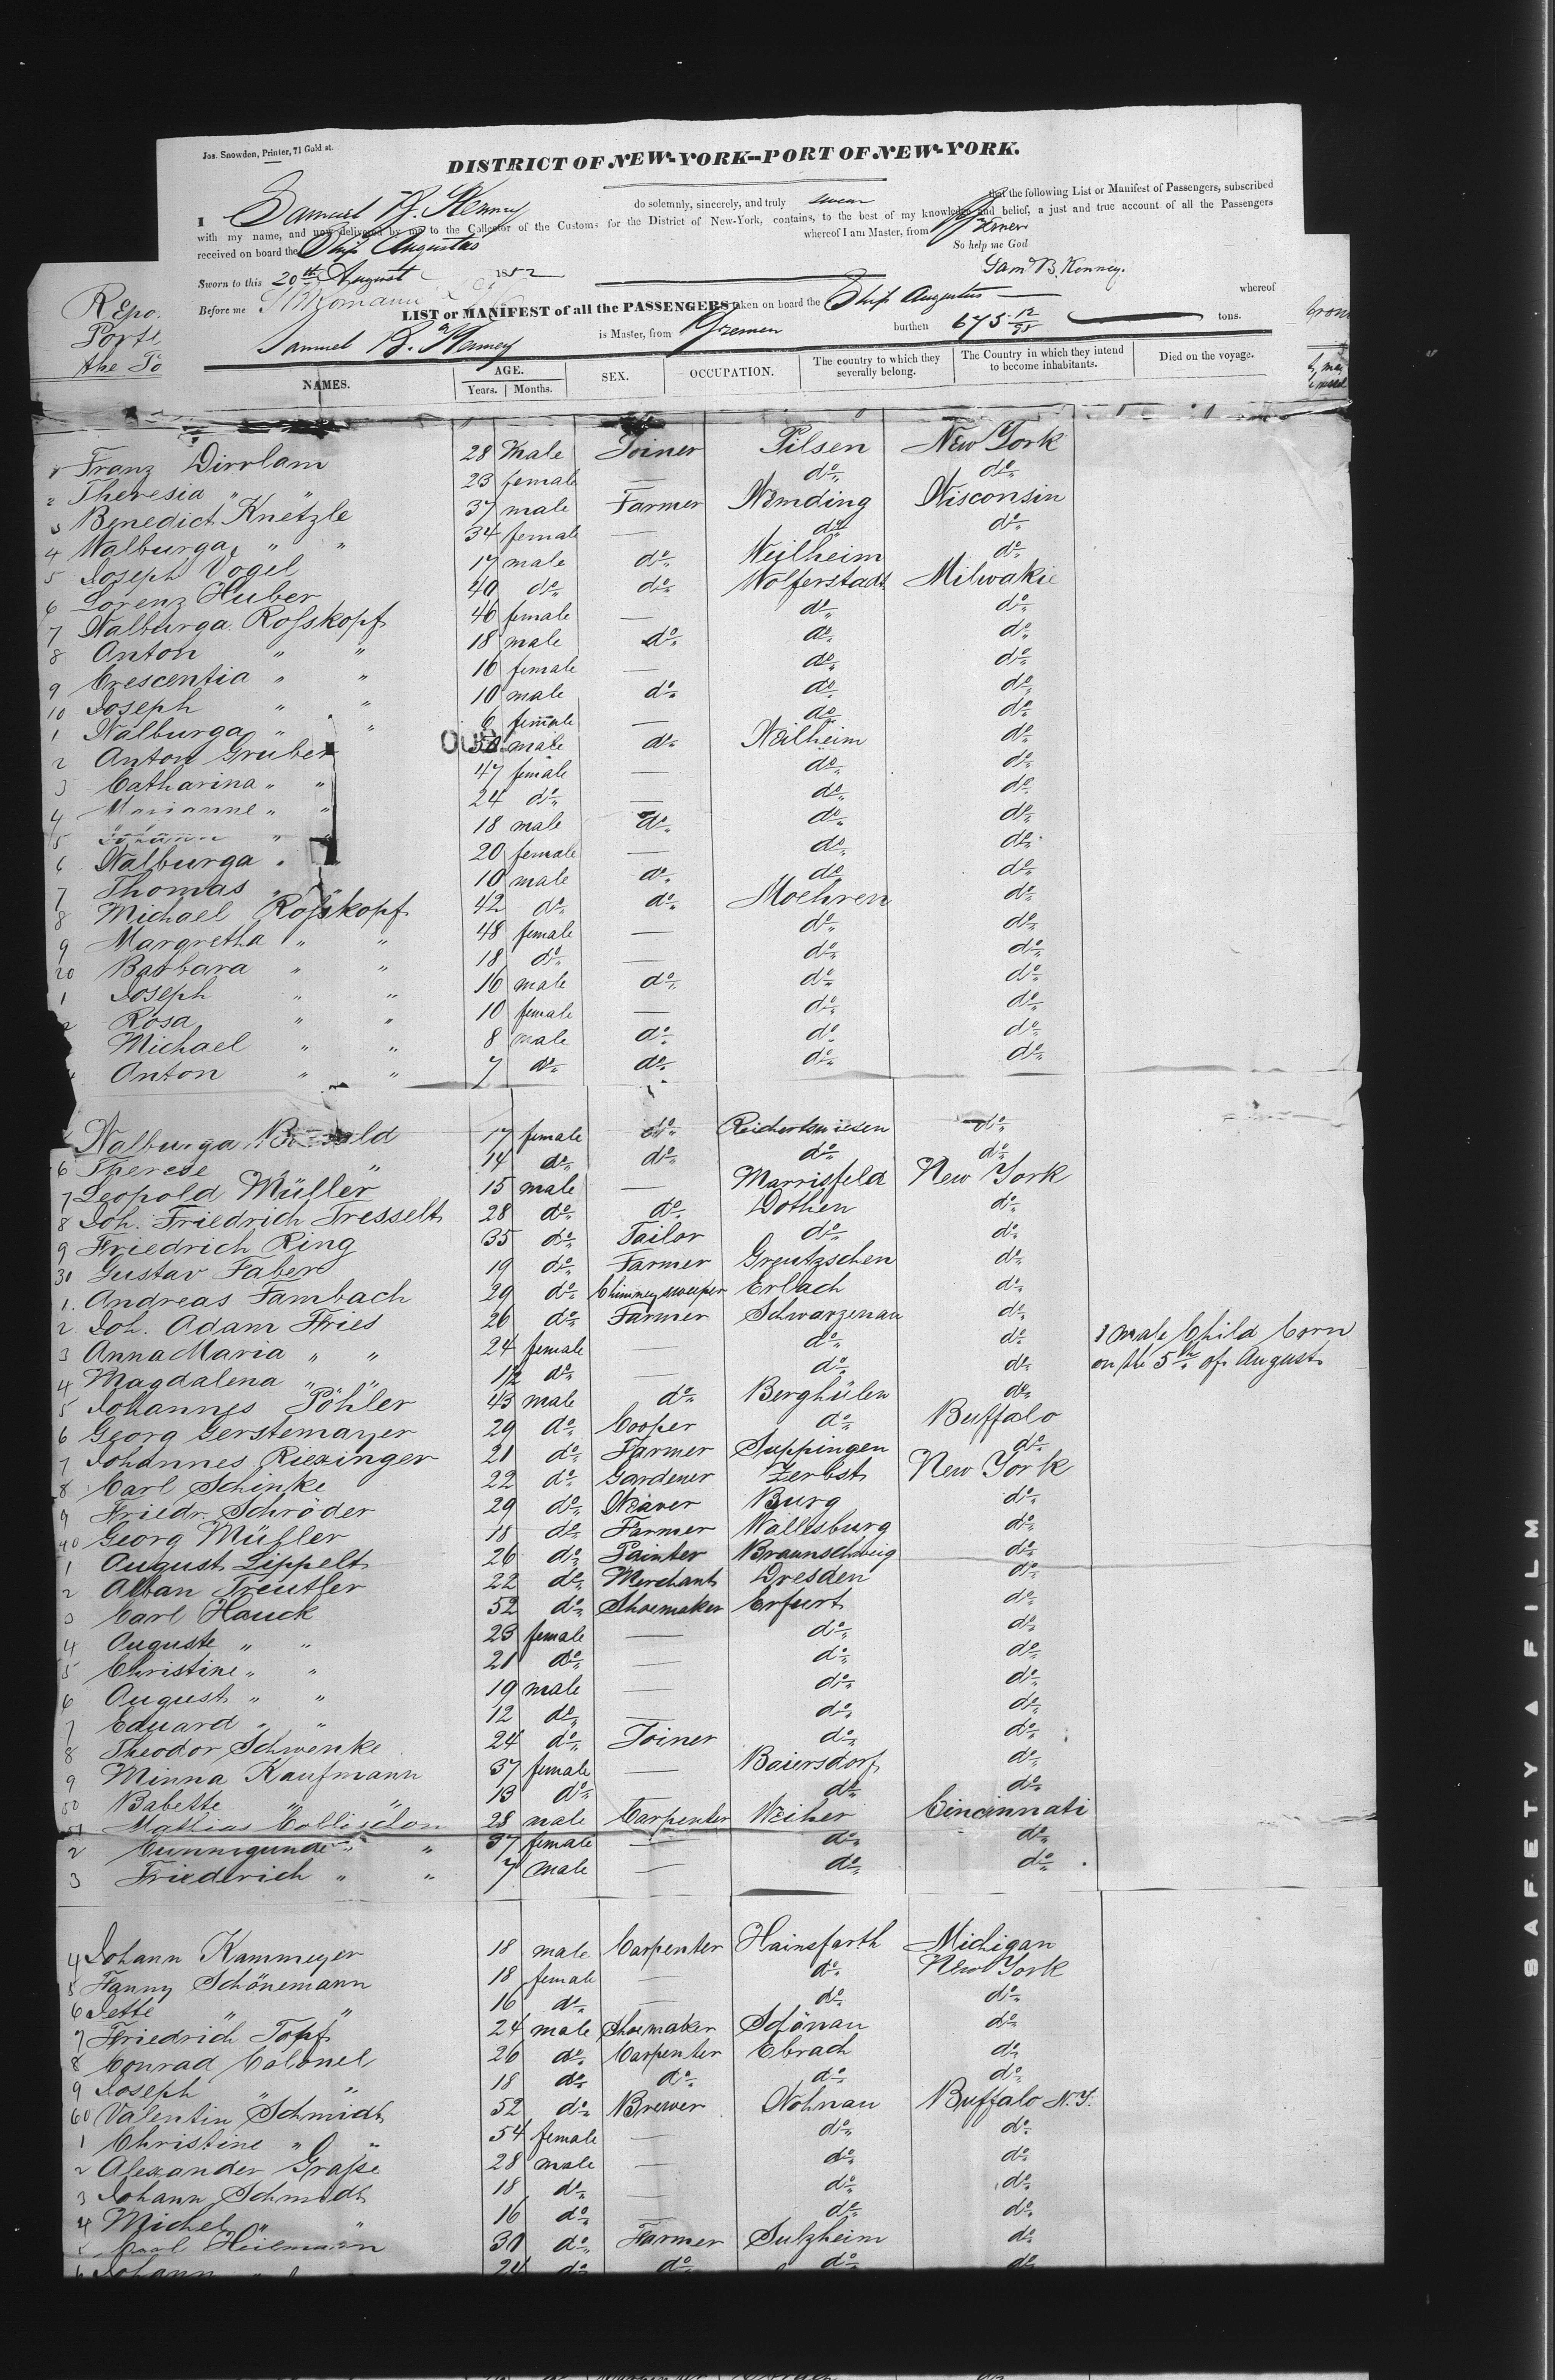 Jos. Snowden, Printer, 71 Gold st.
DISTRICT OF NEW-YORK--PORT OF NEW-YORK.
I Samuel B. Kenney do solemnly, sincerely, and truly swear that the following List or Manifest of Passengers, subscribed
with my name, and now delivered by me to the Collector of the Customs for the District of New-York, contains, to the best of my knowledge and belief, a just and true account of all the Passengers
received on board the Ship Augustus whereof I am Master, from Bremen
So help me God
Sworn to this 20th August 1852 Sam B. Kenney.
Before me
LIST or MANIFEST of all the PASSENGERS taken on board the Ship Augustus whereof
Samuel B. Kenney is Master, from Bremen burthen 675 12/95 tons.
NAMES. AGE. Years. Months. SEX. OCCUPATION. The country to which they severally belong. The Country in which they intend to become inhabitants. Died on the voyage.
1 Franz Dirrlam 28 Male Joiner Pilsen New York
2 Theresia " " 23 female — do do
3 Benedict Knetzle 37 male Farmer Wemding Wisconsin
4 Walburga " " 34 female — do do
5 Joseph Vogel 17 male do Weilheim do
6 Lorenz Huber 40 do do Wolferstadt Milwakie
7 Walburga Rosskopf 46 female — do do
8 Anton " " 18 male do do do
9 Crescentia " " 16 female — do do
10 Joseph " " 10 male do do do
1 Walburga " " 6 female — do do
2 Anton Gruber male do Weilheim do
3 Catharina " " 47 female — do do
4 Marianne " " 24 do — do do
5 Johann " 18 male do do do
6 Walburga " 20 female — do do
7 Thomas " " 10 male do do do
8 Michael Rosskopf 42 do do Moehren do
9 Margretha " " 48 female — do do
20 Barbara " " 18 do — do do
1 Joseph " " 16 male do do do
2 Rosa " " 10 female — do do
Michael " " 8 male do do do
Anton " " 7 do do do do
Walburga 17 female do Reichertswiesen do
6 Therese " 14 do do do do
7 Leopold Müller 15 male — Marrisfeld New York
8 Joh. Friedrich Tresselt 28 do do Dothen do
9 Friedrich Ring 35 do Tailor do do
30 Gustav Faber 19 do Farmer Greutzschen do
1. Andreas Fambach 29 do Chimneysweeper Erlach do
2 Joh. Adam Fries 26 do Farmer Schwarzenau do
3 Anna Maria " " 24 female — do do 1 male Child born
4 Magdalena " " 1/2 do — do do on the 5th of August
5 Johannes Pöhler 43 male do Berghülen do
6 Georg Gerstemayer 29 do Cooper do Buffalo
7 Johannes Riexinger 21 do Farmer Suppingen do
8 Carl Schinke 22 do Gardener Zerbst New York
9 Friedr. Schröder 29 do Weaver Burg do
40 Georg Müller 18 do Farmer Wallesburg do
1 August Lippelt 26 do Painter Braunschweig do
2 Alban Treutler 22 do Merchant Dresden do
3 Carl Hauck 52 do Shoemaker Erfurt do
4 Auguste " " 23 female — do do
5 Christine " " 21 do — do do
6 August " " 19 male — do do
7 Eduard " " 12 do — do do
8 Theodor Schwenke 24 do Joiner do do
9 Minna Kaufmann 37 female — Baiersdorf do
50 Babette " " 13 do do do
51 Mathias 28 male Carpenter Weiher Cincinnati
2 Cunnigunde " " 37 female — do do
3 Friederich " " 7 male — do do
4 Johann Kammeyer 18 male Carpenter Hainsfarth Michigan
5 Fanny Schönemann 18 female — do New York
6 Jette " " 16 do — do do
7 Friedrich Topf 24 male Shoemaker Schönau do
8 Conrad Colonel 26 do Carpenter Ebrach do
9 Joseph " " 18 do do do do
60 Valentin Schmidt 52 do Brewer Wohnau Buffalo N.Y.
1 Christine " " 54 female — do do
2 Alexander Grasse 28 male — do do
3 Johann Schmidt 18 do — do do
4 Michel " " 16 do — do do
Heilmann 30 do Farmer Sulzheim do
6 Johann " 24 do do do do
SAFETY FILM